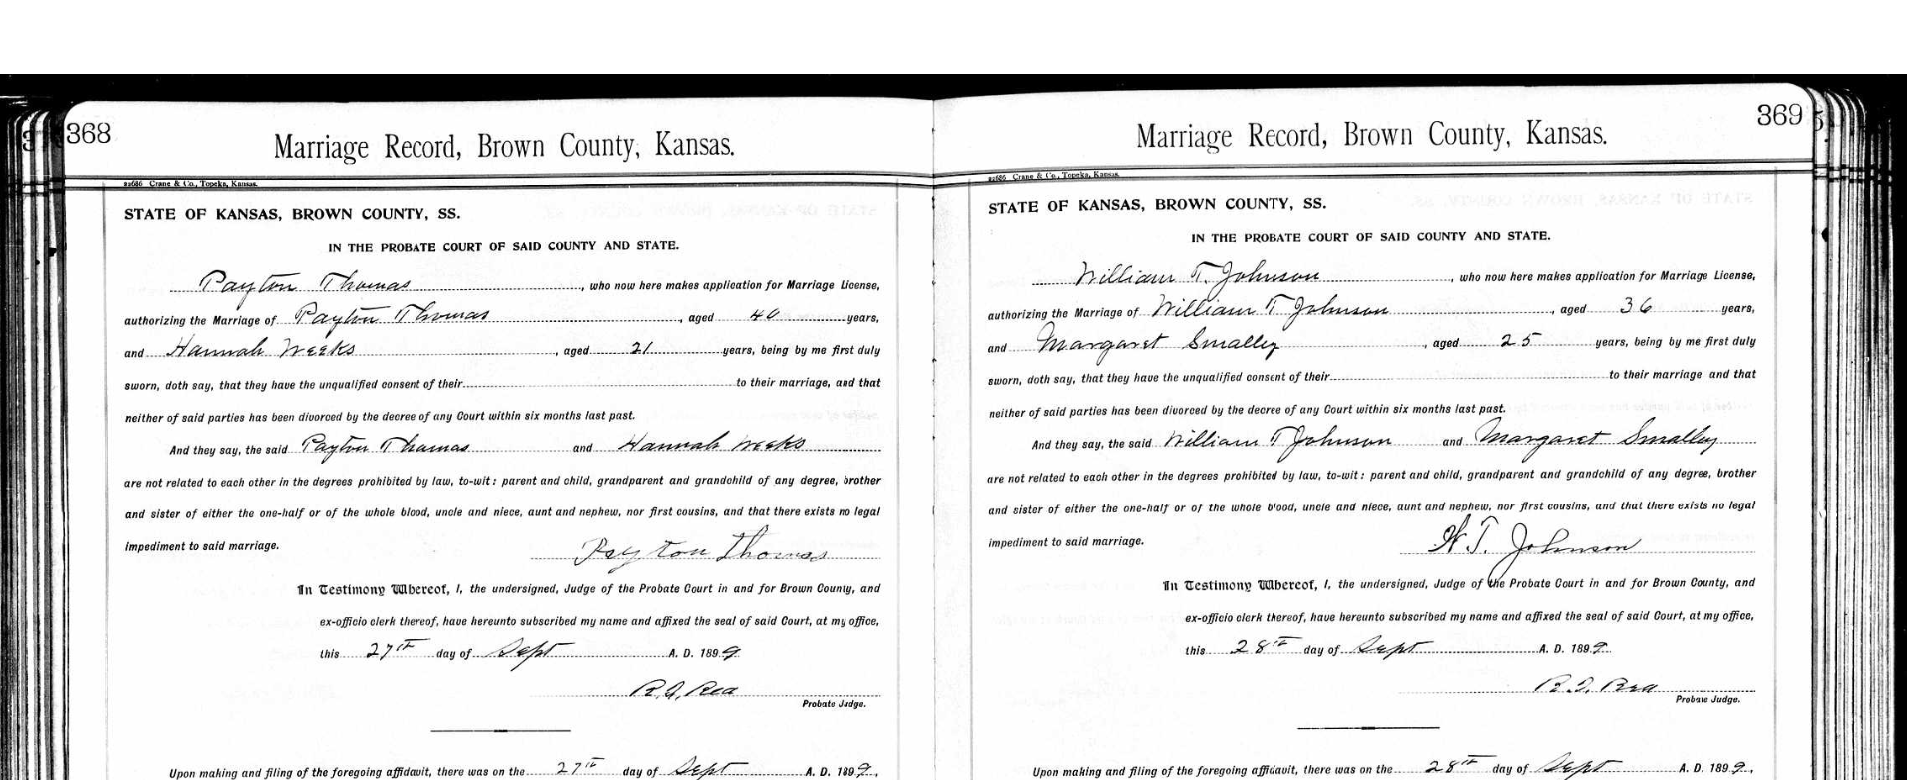 368
Marriage Record, Brown County, Kansas.
22686 Crane & Co., Topeka, Kansas.
STATE OF KANSAS, BROWN COUNTY, SS.
IN THE PROBATE COURT OF SAID COUNTY AND STATE.
Payton Thomas, who now here makes application for Marriage License,
authorizing the Marriage of Payton Thomas, aged 40 years,
and Hannah Weeks, aged 21 years, being by me first duly
sworn, doth say, that they have the unqualified consent of their to their marriage, and that
neither of said parties has been divorced by the decree of any Court within six months last past.
And they say, the said Payton Thomas and Hannah Weeks
are not related to each other in the degrees prohibited by law, to-wit: parent and child, grandparent and grandchild of any degree, brother
and sister of either the one-half or of the whole blood, uncle and niece, aunt and nephew, nor first cousins, and that there exists no legal
impediment to said marriage.
Peyton Thomas
In Testimony Whereof, I, the undersigned, Judge of the Probate Court in and for Brown County, and
ex-officio clerk thereof, have hereunto subscribed my name and affixed the seal of said Court, at my office,
this 27th day of Sept A. D. 1899
Rea
Probate Judge.
Upon making and filing of the foregoing affidavit, there was on the 27th day of Sept A. D. 1899,
369
Marriage Record, Brown County, Kansas.
22686 Crane & Co., Topeka, Kansas.
STATE OF KANSAS, BROWN COUNTY, SS.
IN THE PROBATE COURT OF SAID COUNTY AND STATE.
William T. Johnson, who now here makes application for Marriage License,
authorizing the Marriage of William T Johnson, aged 36 years,
and Margaret Smalley, aged 25 years, being by me first duly
sworn, doth say, that they have the unqualified consent of their to their marriage and that
neither of said parties has been divorced by the decree of any Court within six months last past.
And they say, the said William T Johnson and Margaret Smalley
are not related to each other in the degrees prohibited by law, to-wit: parent and child, grandparent and grandchild of any degree, brother
and sister of either the one-half or of the whole blood, uncle and niece, aunt and nephew, nor first cousins, and that there exists no legal
impediment to said marriage.
W.T. Johnson
In Testimony Whereof, I, the undersigned, Judge of the Probate Court in and for Brown County, and
ex-officio clerk thereof, have hereunto subscribed my name and affixed the seal of said Court, at my office,
this 28th day of Sept A. D. 1899.
Rea
Probate Judge.
Upon making and filing of the foregoing affidavit, there was on the 28th day of Sept A. D. 1899,